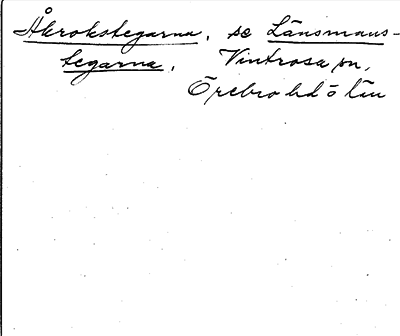 Åkrokstegarna, se Länsmans-
tegarna, Vintrosa sn,
Örebro hd o län